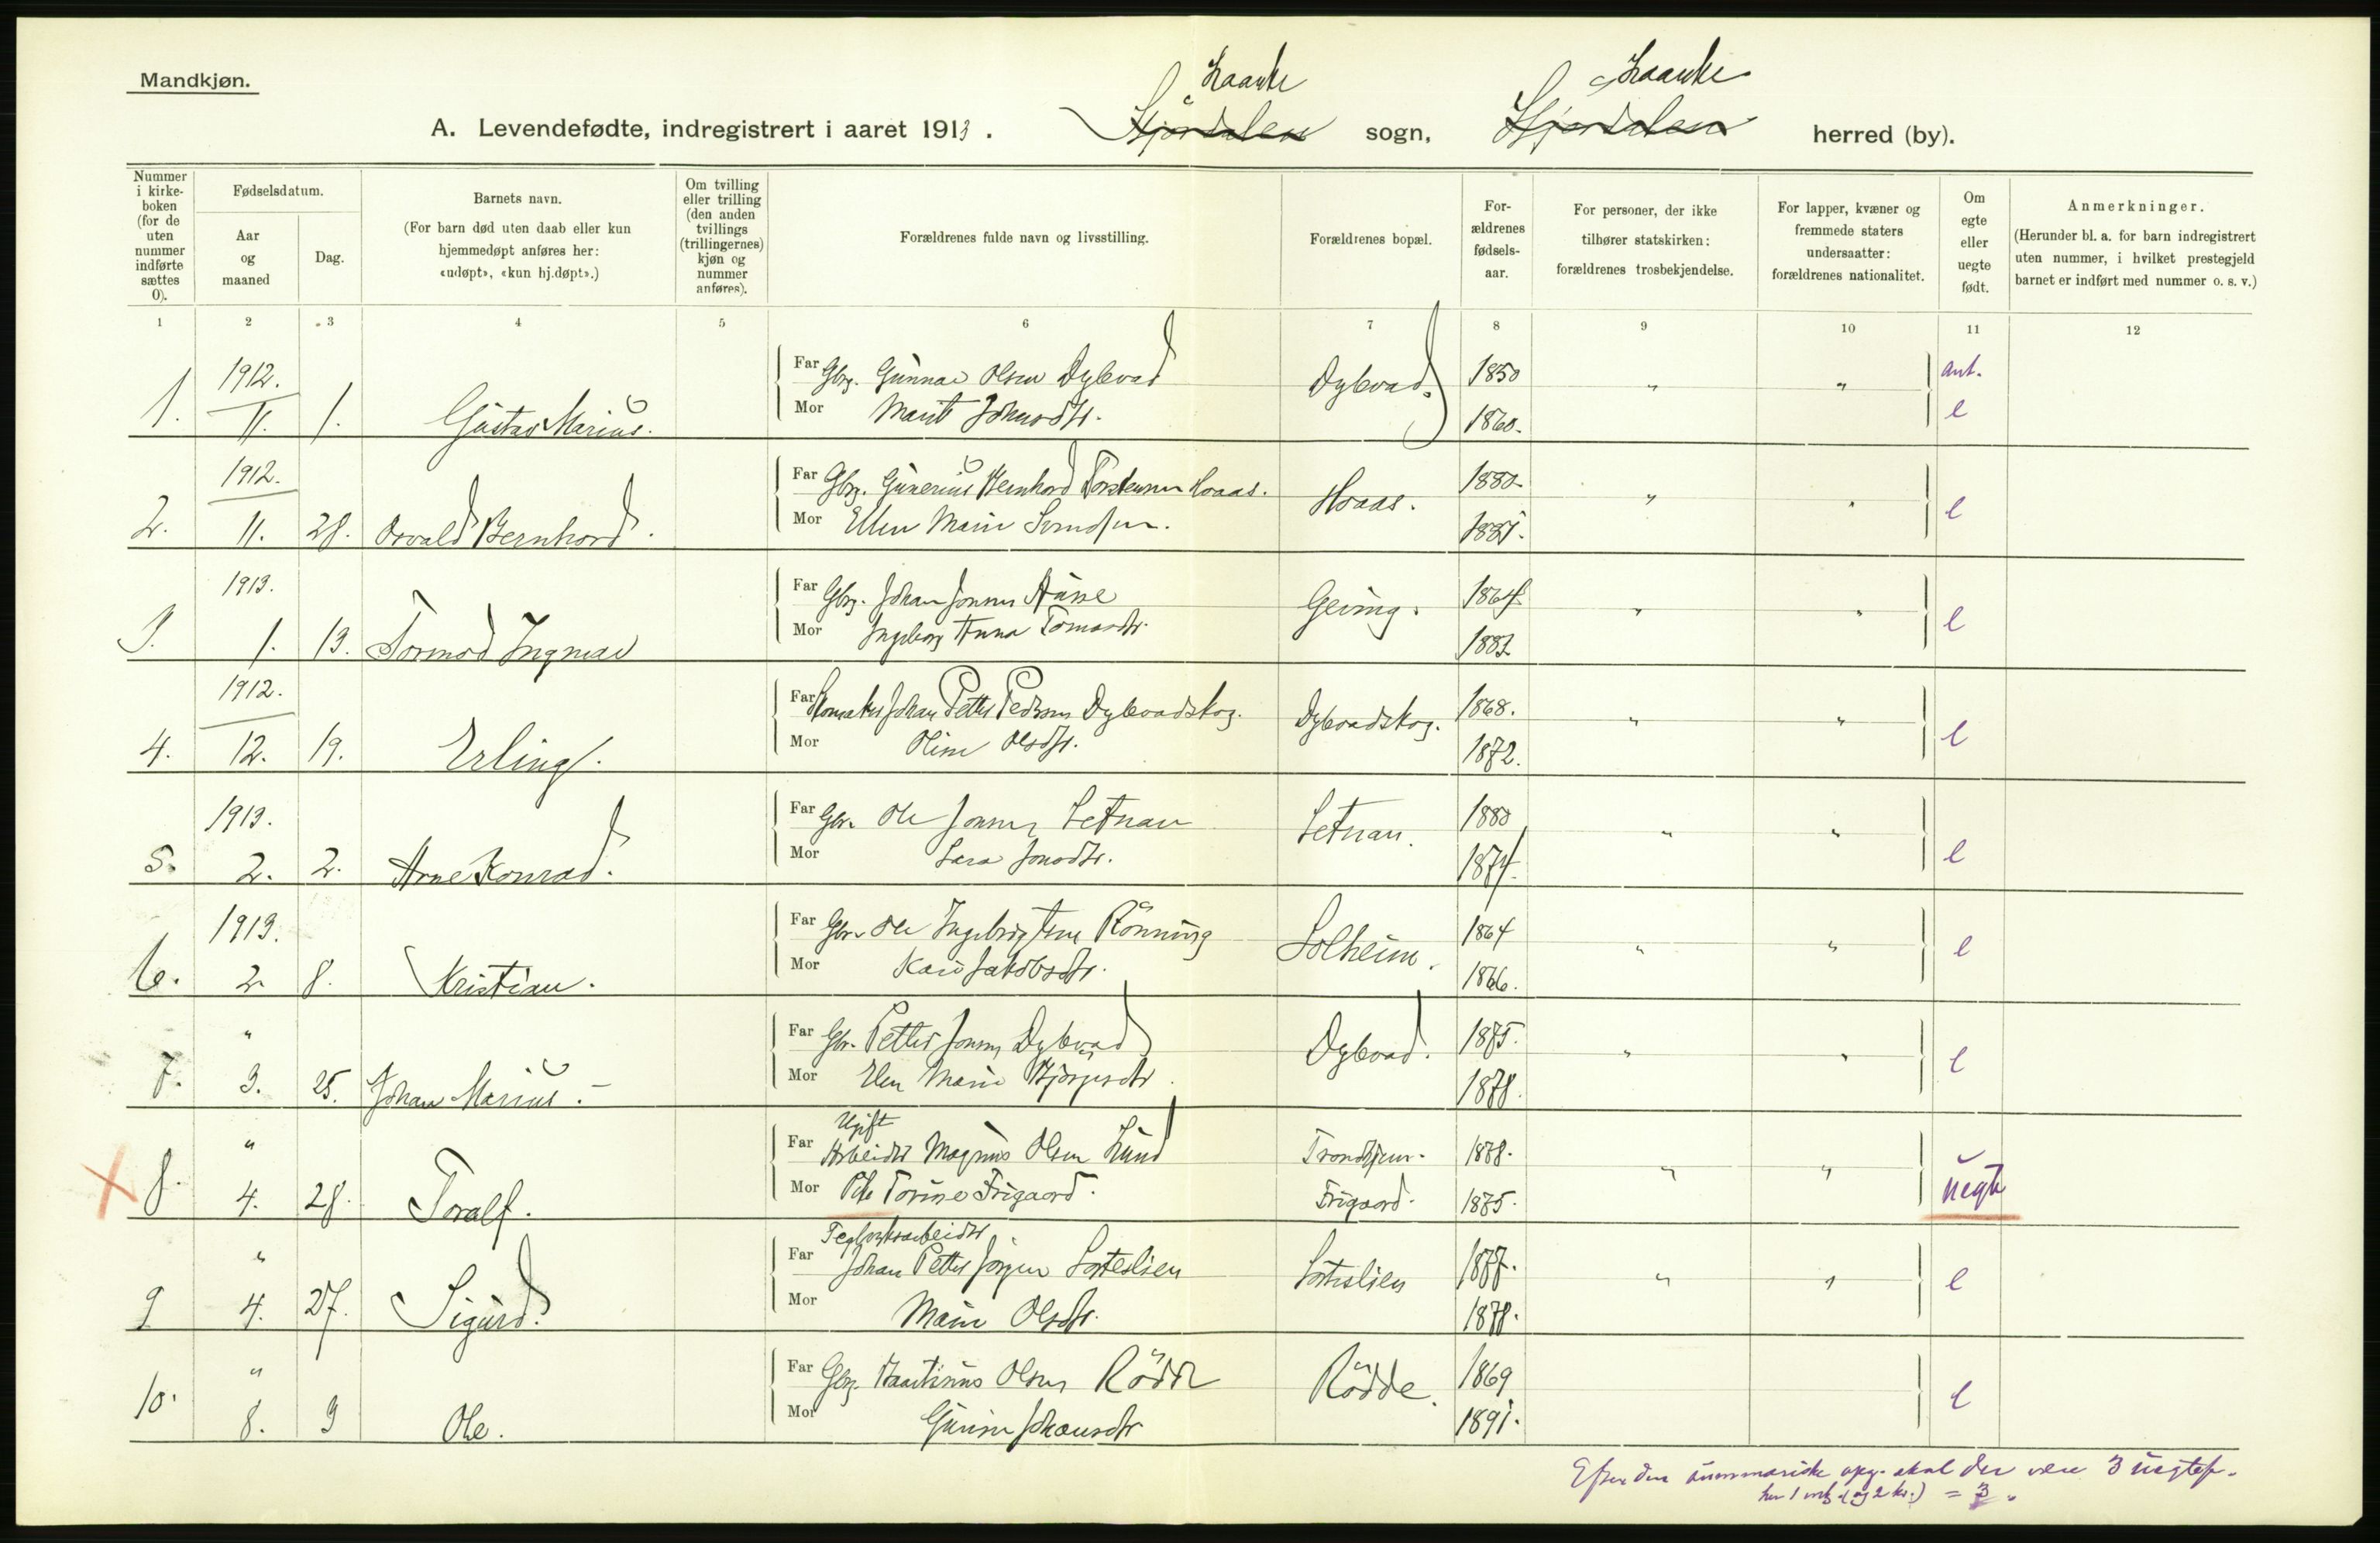 Mandkjøn.
Skaanke
Skaanke
A. Levendefødte, indregistrert i aaret 1913. Stjørdalen sogn, Stjørdalen herred (by).
Nummer i kirke-boken (for de uten nummer indførte sættes 0).
Fødselsdatum.
Aar og maaned
Dag.
Barnets navn.
(For barn død uten daab eller kun
hjemmedøpt anføres her:
«udøpt», «kun hj.døpt».)
Om tvilling
eller trilling
(den anden
tvillings
(trillingernes)
kjøn og
nummer
anføres).
Forældrenes fulde navn og livsstilling.
Forældrenes bopæl.
For-
ældrenes
fødsels-
aar.
For personer, der ikke
tilhører statskirken:
forældrenes trosbekjendelse.
For lapper, kvæner og
fremmede staters
undersaatter:
forældrenes nationalitet.
Om
egte
eller
uegte
født.
Anmerkninger.
(Herunder bl. a. for barn indregistrert
uten nummer, i hvilket prestegjeld
barnet er indført med nummer o. s. v.)
1 2 3 4 5 6 7 8 9 10 11 12
1912. Far Gbrg. Gunnar Olsen Dybvad Dybvad. 1850 " " ant.
1. 11. 1. Gustav Marius. Mor Marit Johnsdtr. 1860. e
1912. Far Gbrg. Gunerius Bernhard Torstensen Hoaas. Hoaas. 1880 " "
2. 11. 28. Osvald Bernhard. Mor Ellen Marie 1881. e
1913. Far Gbrg. Johan Jonsen Geving. 1864 " "
3. 1. 13. Tormod Ingmar Mor Ingeborg Anna Tomasdtr. 1882 e
1912. Far Skomaker Johan Petter Pedersen Dybvadskog. Dybvadskog. 1868. " "
4. 12. 19. Erling. Mor Oline Olsdtr. 1872. e
1913. Far Gbr. Ole Jonsen Setnan Setnan. 1880 " "
5. 2. 2. Arne Konrad. Mor Sara Jonsdtr. 1874. e
1913. Far Gbr. Ole Ingebrigtsen Rönning Solheim. 1864 " "
6. 2. 8. Kristian. Mor Kari Jakobsdtr. 1866. e
" Far Gbr. Petter Jonsen Dybvad Dybvad. 1875. " "
7. 3. 25. Johan Marius. Mor Elen Marie 1878. e
Ugift
" Far Arbeider Magnus Olsen Lund Trondhjem. 1878. " "
8. 4. 28. Toralf. Mor Pike Torine Frigaard. Frigaard. 1875. uegte
Teglverksarbeider
" Far Johan Petter Jörgen Sorteslien Sorteslien 1877. " "
9 4. 27. Sigurd. Mor Marie Olsdtr. 1878. e
" Far Gbrg. Olsen Rödde Rödde. 1869
10. 8. 3 Ole. Mor Johansdtr. 1891. e
Efter den summariske opg. skal der være 3 uegtef.
her 1 mk. (og 2 kv.) = 3.